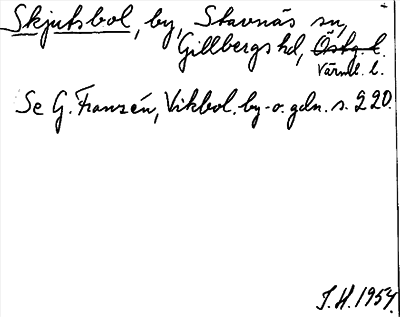 Skjutsbol, by, Stavnäs sn,
Gillbergs hd, Östg. l.
Värml. l.
Se G. Franzén, Vikbol. by- o. gdn. s. 220.
J. H. 1954.